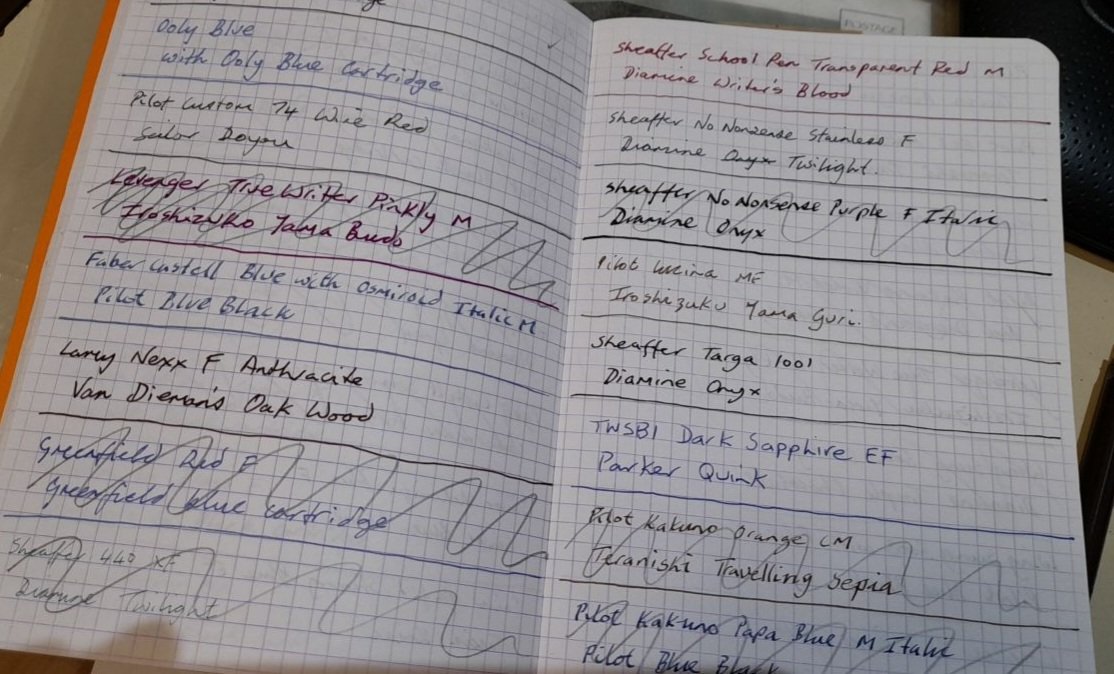 Ooly Blue
with Ooly Blue Cartridge
Pilot Custom 74 Wine Red
Sailor Doyou
Levenger True Writer Pinkly M
Iroshizuko Yama Budo
Faber Castell Blue with Osmiroid Italic M
Pilot Blue Black
Lamy Nexx F Anthracite
Van Dieman's Oak Wood
Greenfield Red F
Greenfield blue cartridge
Sheaffer 440 XF
Diamine Twilight
POSTAGE
Sheaffer School Pen Transparent Red M
Diamine Writer's Blood
Sheaffer No Nonsense Stainless F
Diamine Onyx Twilight.
Sheaffer No Nonsense Purple F Italic
Diamine Onyx
Pilot Lucina MF
Iroshizuku Yama Guri.
Sheaffer Targa 1001
Diamine Onyx
TWSBI Dark Sapphire EF
Parker Quink
Pilot Kakuno Orange CM
Teranishi Travelling Sepia
Pilot Kakuno Papa Blue M Italic
Pilot Blue Black